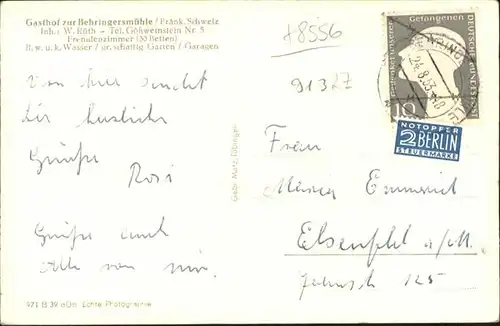 Gasthof zur Behringersmühle / Fränk. Schweiz
Inh.: W. Rüth - Tel. Gößweinstein Nr. 5
Fremdenzimmer (30 Betten)
fl. w. u. k. Wasser / gr. schattig. Garten / Garagen
+8556
91327
Von hier sendet
dir herzliche
Grüße
Rosi
Grüße auch
alle von mir.
Gebr. Metz, Tübingen
DEUTSCHE BUNDESPOST
Gedenket unserer Gefangenen
10
24.8.53
NOTOPFER
2 BERLIN
STEUERMARKE
Frau
Maria Emmerich
Elsenfeld a/M.
125
971 B 39 Echte Photographie